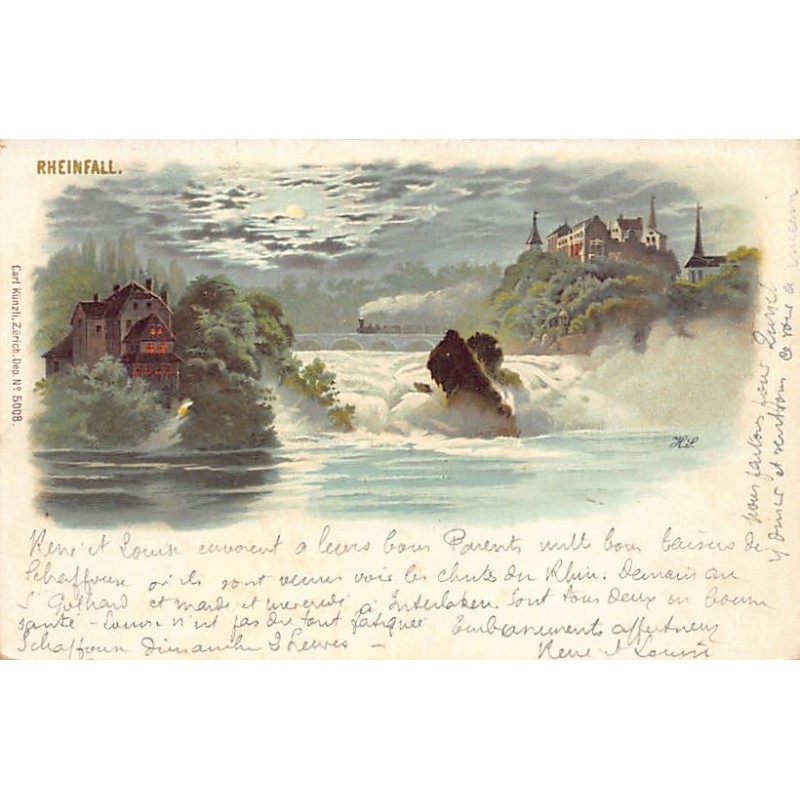 RHEINFALL.
Carl Künzli, Zürich. Dep. No 5008.
H.S.
René et Louise envoient a leurs bons Parents mille bons baisers de
Schaffouse où ils sont venus voir les chutes du Rhin. Demain au
St Gothard et mardi et mercredi à Interlaken. Sont tous deux en bonne
santé - Louise n'est pas du tout fatiguée Embrassements affectueux
Schaffouse Dimanche 2 heures - René et Louise
Nous partons pour Zurich
y dîner et rentrons ce soir à Lucerne